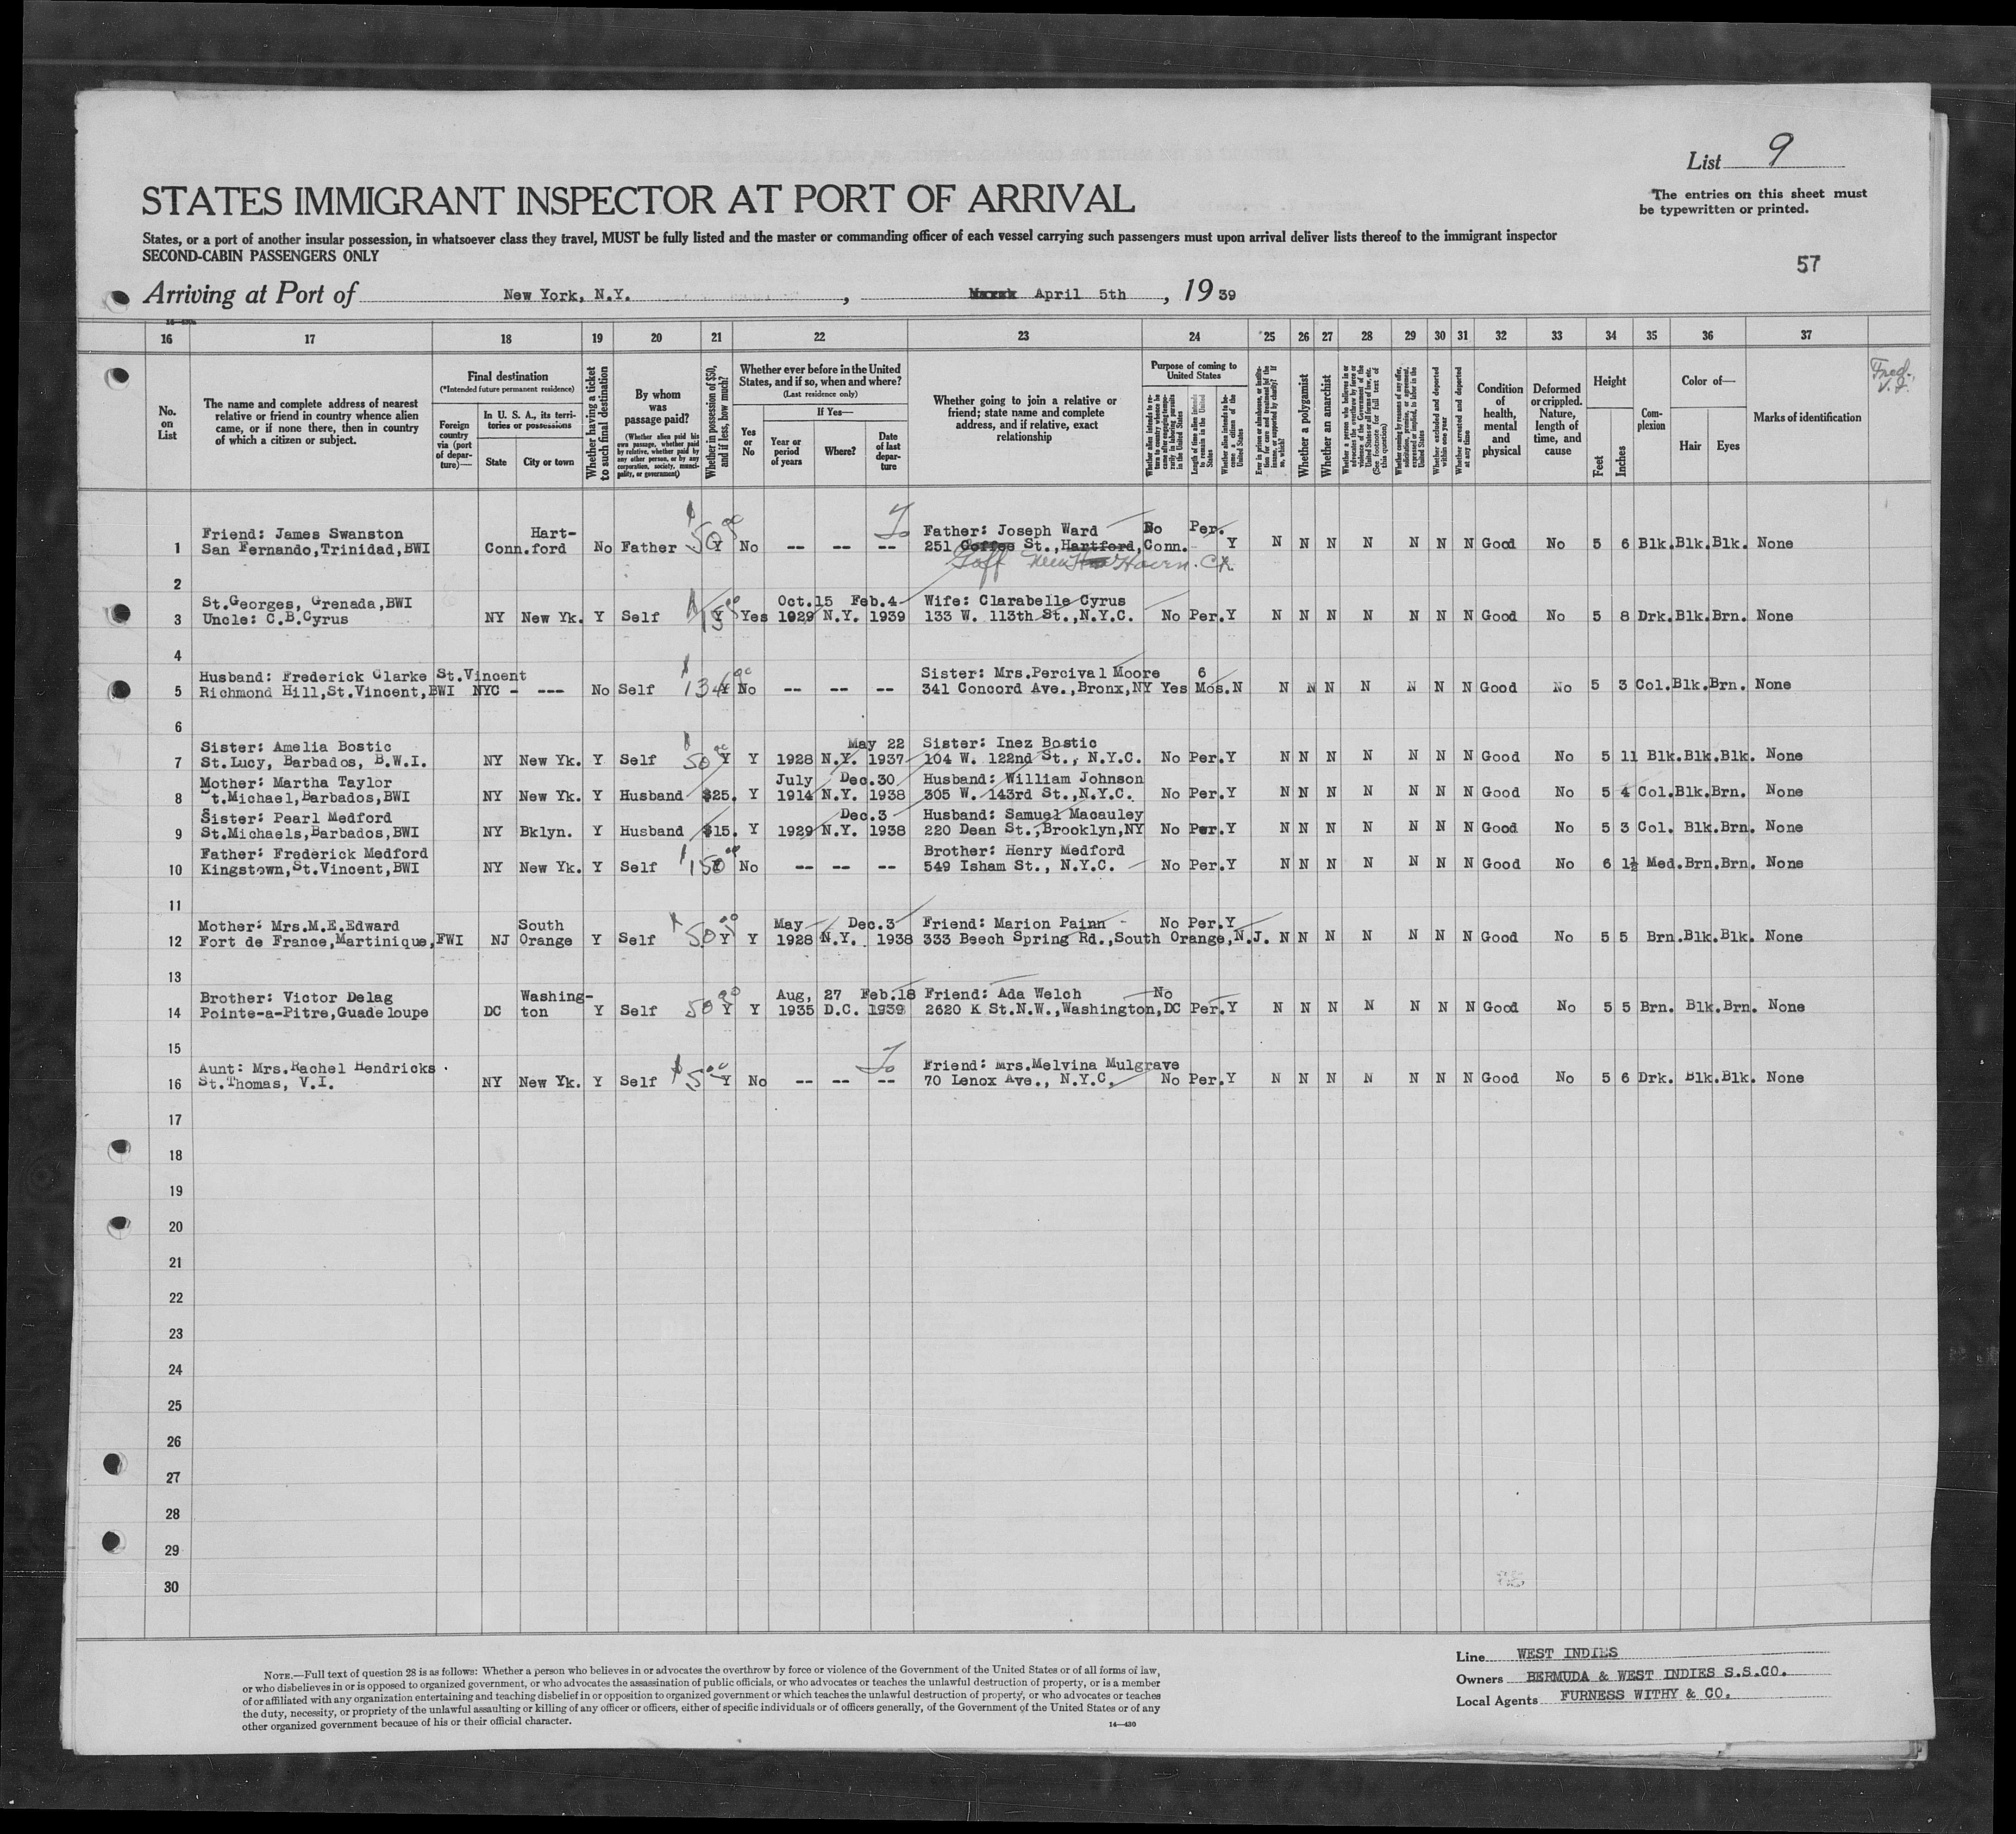 List 9
STATES IMMIGRANT INSPECTOR AT PORT OF ARRIVAL
The entries on this sheet must
be typewritten or printed.
States, or a port of another insular possession, in whatsoever class they travel, MUST be fully listed and the master or commanding officer of each vessel carrying such passengers must upon arrival deliver lists thereof to the immigrant inspector
SECOND-CABIN PASSENGERS ONLY
57
Arriving at Port of New York, N.Y., April 5th, 1939
16 17 18 19 20 21 22 23 24 25 26 27 28 29 30 31 32 33 34 35 36 37
No. on List
The name and complete address of nearest relative or friend in country whence alien came, or if none there, then in country of which a citizen or subject.
Final destination
(*Intended future permanent residence)
Foreign country via (port of departure)—
In U. S. A., its territories or possessions
State
City or town
Whether having a ticket to such final destination
By whom was passage paid?
(Whether alien paid his own passage, whether paid by relative, whether paid by any other person, or by any corporation, society, municipality, or government)
Whether in possession of $50, and if less, how much?
Whether ever before in the United States, and if so, when and where?
(Last residence only)
Yes or No
If Yes—
Year or period of years
Where?
Date of last departure
Whether going to join a relative or friend; state name and complete address, and if relative, exact relationship
Purpose of coming to United States
Whether alien intends to return to country whence he came after engaging temporarily in laboring pursuits in the United States
Length of time alien intends to remain in the United States
Whether alien intends to become a citizen of the United States
Ever in prison or almshouse, or institution for care and treatment of the insane, or supported by charity? If so, which?
Whether a polygamist
Whether an anarchist
Whether a person who believes in or advocates the overthrow by force or violence of the Government of the United States or all forms of law, etc. (See footnote for full text of this question)
Whether coming by reason of any offer, solicitation, promise, or agreement, expressed or implied, to labor in the United States
Whether excluded and deported within one year
Whether arrested and deported at any time
Condition of health, mental and physical
Deformed or crippled. Nature, length of time, and cause
Height
Feet
Inches
Complexion
Color of—
Hair
Eyes
Marks of identification
Fred.
V.I.
Friend: James Swanston Hart- $50.00 Father: Joseph Ward No Per.
1 San Fernando,Trinidad,BWI Conn.ford No Father Y No -- -- -- 251 Coffee St.,Hartford,Conn. Y N N N N N N N Good No 5 6 Blk.Blk.Blk. None
Goff New Haven. Ct.
2
St.Georges, Grenada,BWI $15.00 Oct.15 Feb.4 Wife: Clarabelle Cyrus
3 Uncle: C.B.Cyrus NY New Yk. Y Self Y Yes 1929 N.Y. 1939 133 W. 113th St.,N.Y.C. No Per.Y N N N N N N N Good No 5 8 Drk.Blk.Brn. None
4
Husband: Frederick Clarke St.Vincent Sister: Mrs.Percival Moore 6
5 Richmond Hill,St.Vincent,BWI NYC - --- No Self Y No -- -- -- 341 Concord Ave.,Bronx,NY Yes Mos.N N N N N N N N Good No 5 3 Col.Blk.Brn. None
6
Sister: Amelia Bostic $50.00 May 22 Sister: Inez Bostic
7 St.Lucy, Barbados, B.W.I. NY New Yk. Y Self Y Y 1928 N.Y. 1937 104 W. 122nd St., N.Y.C. No Per.Y N N N N N N N Good No 5 11 Blk.Blk.Blk. None
Mother: Martha Taylor July Dec.30 Husband: William Johnson
8 St.Michael,Barbados,BWI NY New Yk. Y Husband $25. Y 1914 N.Y. 1938 305 W. 143rd St.,N.Y.C. No Per.Y N N N N N N N Good No 5 4 Col.Blk.Brn. None
Sister: Pearl Medford Dec.3 Husband: Samuel Macauley
9 St.Michaels,Barbados,BWI NY Bklyn. Y Husband $15. Y 1929 N.Y. 1938 220 Dean St.,Brooklyn,NY No Per.Y N N N N N N N Good No 5 3 Col. Blk.Brn. None
Father: Frederick Medford $150.00 Brother: Henry Medford
10 Kingstown,St.Vincent,BWI NY New Yk. Y Self Y No -- -- -- 549 Isham St., N.Y.C. No Per.Y N N N N N N N Good No 6 1½ Med.Brn.Brn. None
11
Mother: Mrs.M.E.Edward South $50.00 May Dec.3 Friend: Marion Painn No Per.Y
12 Fort de France,Martinique,FWI NJ Orange Y Self Y Y 1928 N.Y. 1938 333 Beech Spring Rd.,South Orange,N.J. N N N N N N N Good No 5 5 Brn.Blk.Blk. None
13
Brother: Victor Delag Washing- 50.00 Aug, 27 Feb.18 Friend: Ada Welch No
14 Pointe-a-Pitre,Guadeloupe DC ton Y Self Y Y 1935 D.C. 1939 2620 K St.N.W.,Washington,DC Per.Y N N N N N N N Good No 5 5 Brn. Blk.Brn. None
15
Aunt: Mrs.Rachel Hendricks Friend: Mrs.Melvina Mulgrave
16 St.Thomas, V.I. NY New Yk. Y Self $5.00 Y No -- -- -- 70 Lenox Ave., N.Y.C. No Per.Y N N N N N N N Good No 5 6 Drk. Blk.Blk. None
17
18
19
20
21
22
23
24
25
26
27
28
29
30
NOTE.—Full text of question 28 is as follows: Whether a person who believes in or advocates the overthrow by force or violence of the Government of the United States or of all forms of law,
or who disbelieves in or is opposed to organized government, or who advocates the assassination of public officials, or who advocates or teaches the unlawful destruction of property, or is a member
of or affiliated with any organization entertaining and teaching disbelief in or opposition to organized government or which teaches the unlawful destruction of property, or who advocates or teaches
the duty, necessity, or propriety of the unlawful assaulting or killing of any officer or officers, either of specific individuals or of officers generally, of the Government of the United States or of any
other organized government because of his or their official character.
14—430
Line WEST INDIES
Owners BERMUDA & WEST INDIES S.S.CO.
Local Agents FURNESS WITHY & CO.